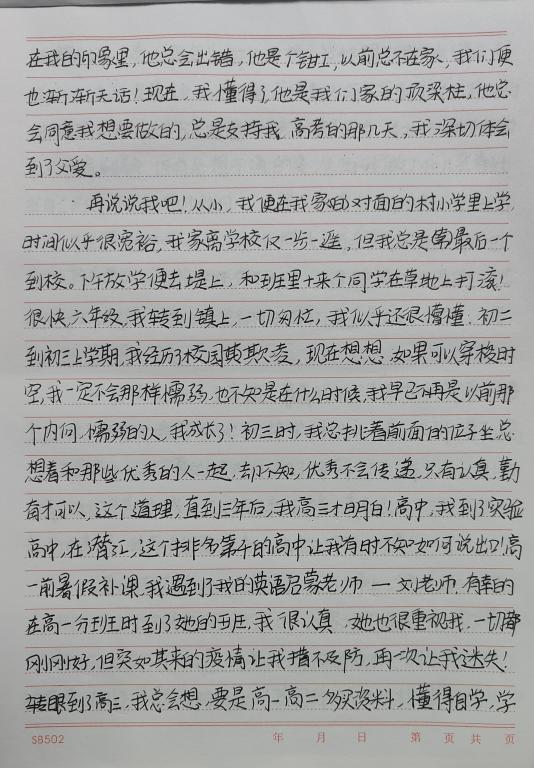 在我的印象里，他总会出错，他是个钳工，以前总不在家，我们便
也渐渐无话！现在，我懂得了，他是我们家的顶梁柱，他总
会同意我想要做的，总是支持我，高考的那几天，我深切体会
到了父爱。
再说说我吧！从小，我便在我家对面的村小学里上学，
时间似乎很宽裕，我家离学校仅一步一遥，但我总是最后一个
到校。下午放学便去堤上，和班里十来个同学在草地上打滚！
很快，六年级，我转到镇上，一切匆忙，我似乎还很懵懂。初二
到初三上学期，我经历了校园欺凌，现在想想，如果可以穿梭时
空，我一定不会那样懦弱，也不知是在什么时候，我早已不再是以前那
个内向，懦弱的人，我成长了！初三时，我总挑着前面的位子坐，总
想着和那些优秀的人一起，却不知，优秀不会传递，只有认真，勤
奋才可以，这个道理，直到三年后，我高三才明白！高中，我到了实验
高中，在潜江，这个排名第4的高中让我有时不知如何说出口！高
一前暑假补课，我遇到了我的英语启蒙老师 — 刘老师，有幸的
在高一分班时到了她的班，我很认真，她也很重视我，一切都
刚刚好，但突如其来的疫情让我措不及防，再一次让我迷失！
转眼到了高三，我总会想，要是高一高二多买资料，懂得自学，学
SB502 年 月 日 第 页 共 页